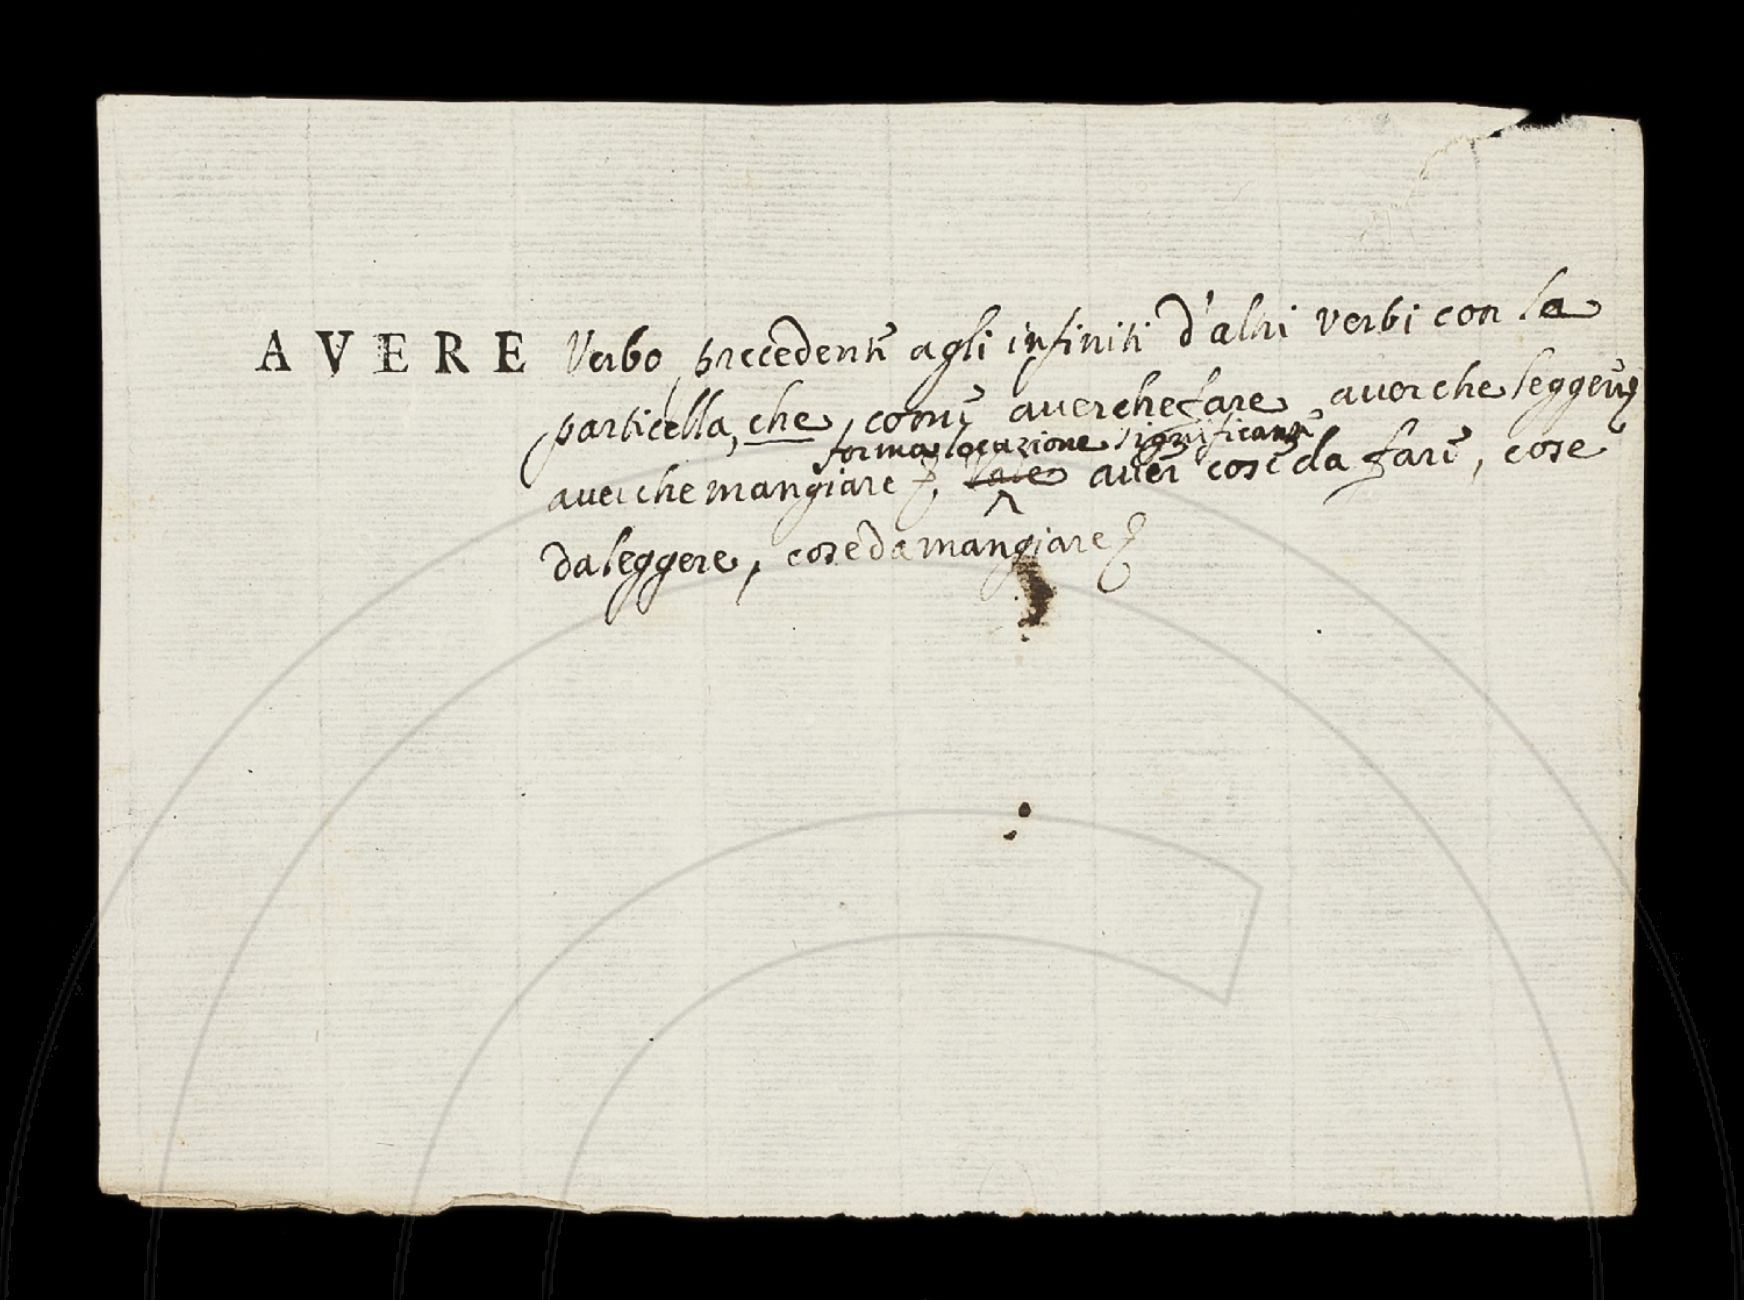 AVERE Verbo precedente agli infiniti d'altri verbi con la
particella, che, come aver che fare aver che leggere,
forma locuzione significante
aver che mangiare &, vale aver cose da fare, cose
da leggere, cose da mangiare &